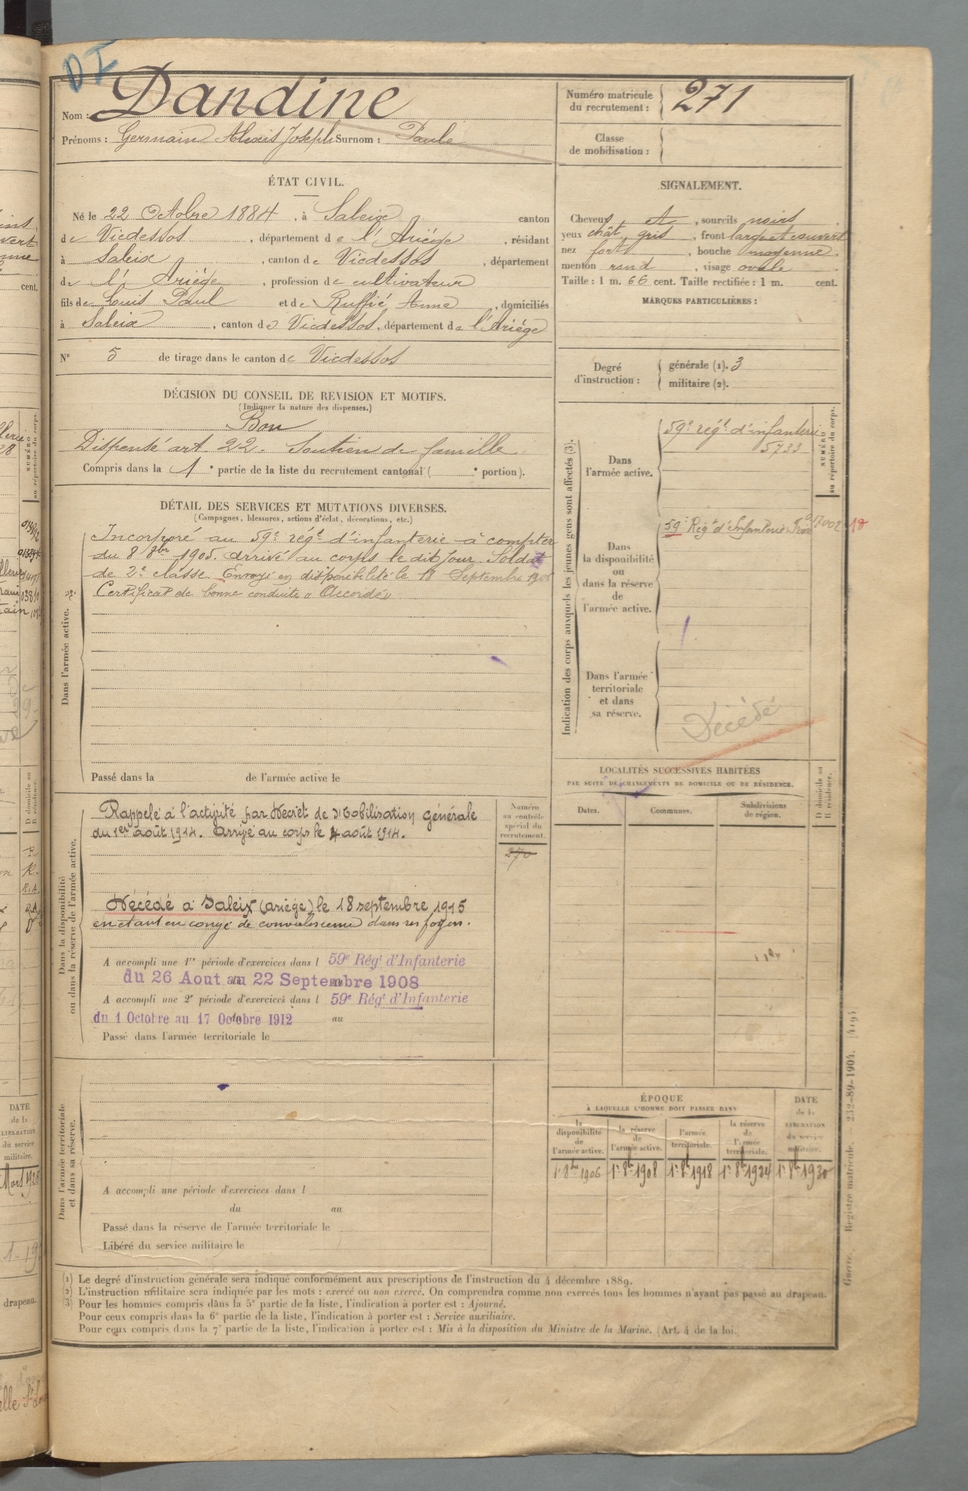 DI
Nom : Dandine
Prénoms : Germain Alexis Joseph Surnom : Paule
Numéro matricule du recrutement : 271
Classe de mobilisation :
ÉTAT CIVIL.
Né le 22 Octobre 1884, à Saleix canton
de Vicdessos, département de l'Ariège, résidant
à Saleix, canton de Vicdessos, département
de l'Ariège, profession de cultivateur
fils de Louis Paul et de Ruffié Anna, domiciliés
à Saleix, canton de Vicdessos, département de l'Ariège
N° 5 de tirage dans le canton de Vicdessos
SIGNALEMENT.
Cheveux et, sourcils noirs
yeux chât. gris, front large et couvert
nez fort, bouche moyenne
menton rond, visage ovale
Taille : 1 m. 66 cent. Taille rectifiée : 1 m. cent.
MARQUES PARTICULIÈRES :
Degré d'instruction : générale (1). 3
militaire (2).
DÉCISION DU CONSEIL DE REVISION ET MOTIFS.
(Indiquer la nature des dispenses.)
Bon
Dispensé art. 22. Soutien de famille
Compris dans la 1e partie de la liste du recrutement cantonal ( e portion).
DÉTAIL DES SERVICES ET MUTATIONS DIVERSES.
(Campagnes, blessures, actions d'éclat, décorations, etc.)
Dans l'armée active.
Incorporé au 59e régt d'infanterie à compter
du 8 8bre 1905. arrivé au corps le dit jour. Soldat
de 2e classe. Envoyé en disponibilité le 18 Septembre 1906
Certificat de bonne conduite « Accordé »
Passé dans la de l'armée active le
Indication des corps auxquels les jeunes gens sont affectés (3).
NUMÉRO au répertoire du corps.
Dans l'armée active.
59e régt d'infanterie
5733
Dans la disponibilité ou dans la réserve de l'armée active.
59e Régt d'Infanterie
Dans l'armée territoriale et dans sa réserve.
Décédé
LOCALITÉS SUCCESSIVES HABITÉES
PAR SUITE DE CHANGEMENTS DE DOMICILE OU DE RÉSIDENCE.
Dates.
Communes.
Subdivisions de région.
D domicile ou R résidence.
Dans la disponibilité ou dans la réserve de l'armée active.
Numéro au contrôle spécial du recrutement.
270
Rappelé à l'activité par Décret de Mobilisation générale
du 1er août 1914. Arrivé au corps le 4 août 1914.
Décédé à Saleix (ariège) le 18 septembre 1915
en étant en congé de convalescence dans ses foyers.
A accompli une 1re période d'exercices dans l 59e Régt d'Infanterie
du 26 Aout au 22 Septembre 1908
A accompli une 2e période d'exercices dans l 59e Régt d'Infanterie
du 1 Octobre au 17 Octobre 1912 au
Passé dans l'armée territoriale le
Dans l'armée territoriale et dans sa réserve.
A accompli une période d'exercices dans l
du au
Passé dans la réserve de l'armée territoriale le
Libéré du service militaire le
ÉPOQUE
À LAQUELLE L'HOMME DOIT PASSER DANS
la disponibilité de l'armée active.
la réserve de l'armée active.
l'armée territoriale.
la réserve de l'armée territoriale.
DATE de la LIBÉRATION du service militaire.
1er 8bre 1906 1er 8bre 1908 1er 8bre 1918 1er 8bre 1924 1er 8bre 1930
(1) Le degré d'instruction générale sera indiqué conformément aux prescriptions de l'instruction du 4 décembre 1889.
(2) L'instruction militaire sera indiquée par les mots : exercé ou non exercé. On comprendra comme non exercés tous les hommes n'ayant pas passé au drapeau.
(3) Pour les hommes compris dans la 5e partie de la liste, l'indication à porter est : Ajourné.
Pour ceux compris dans la 6e partie de la liste, l'indication à porter est : Service auxiliaire.
Pour ceux compris dans la 7e partie de la liste, l'indication à porter est : Mis à la disposition du Ministre de la Marine. (Art. 4 de la loi.)
Guerre. Registre matricule. 232-89-1904. [4194]